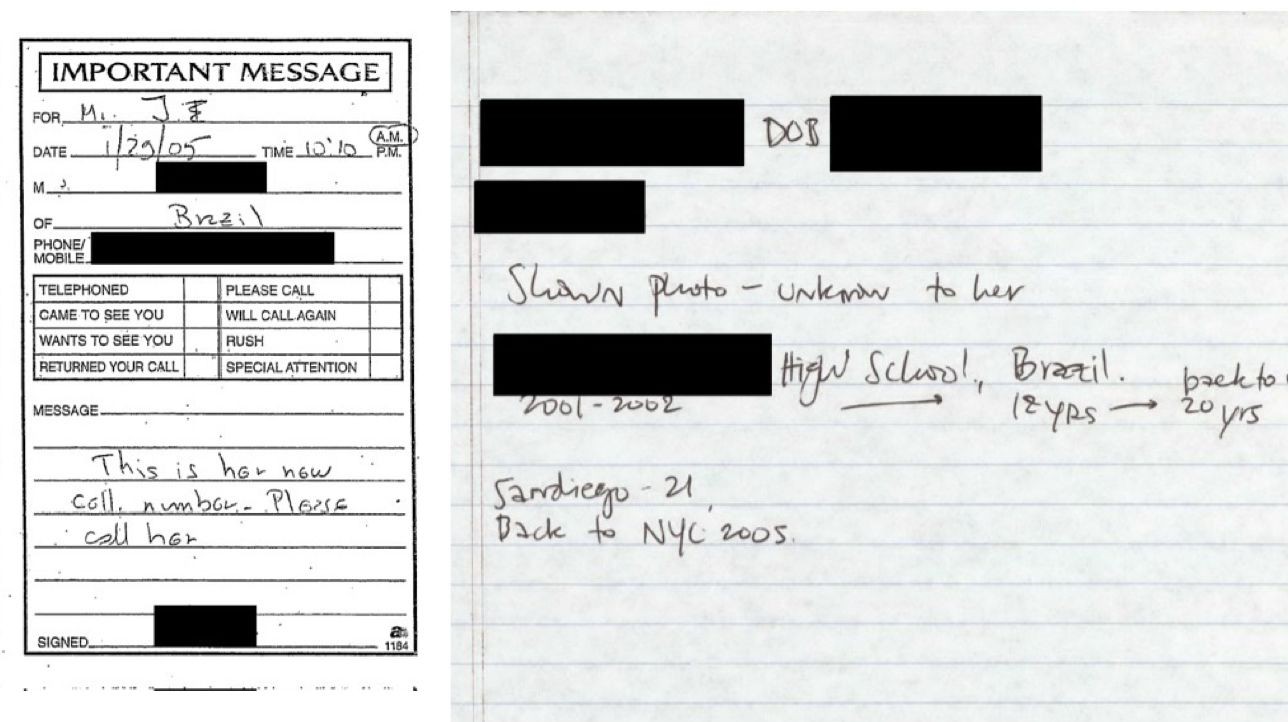 IMPORTANT MESSAGE
FOR Mr. J.E
DATE 1/29/05 TIME 10:10 A.M.
P.M.
M
OF Brazil
PHONE/
MOBILE
TELEPHONED PLEASE CALL
CAME TO SEE YOU WILL CALL AGAIN
WANTS TO SEE YOU RUSH
RETURNED YOUR CALL SPECIAL ATTENTION
MESSAGE
This is her new
cell. number. Please
call her
SIGNED
1184
DOB
Shown photo - unknown to her
High School, Brazil. back to
2001-2002 12 yrs → 20 yrs
Sandiego - 21
Back to NYC 2005.